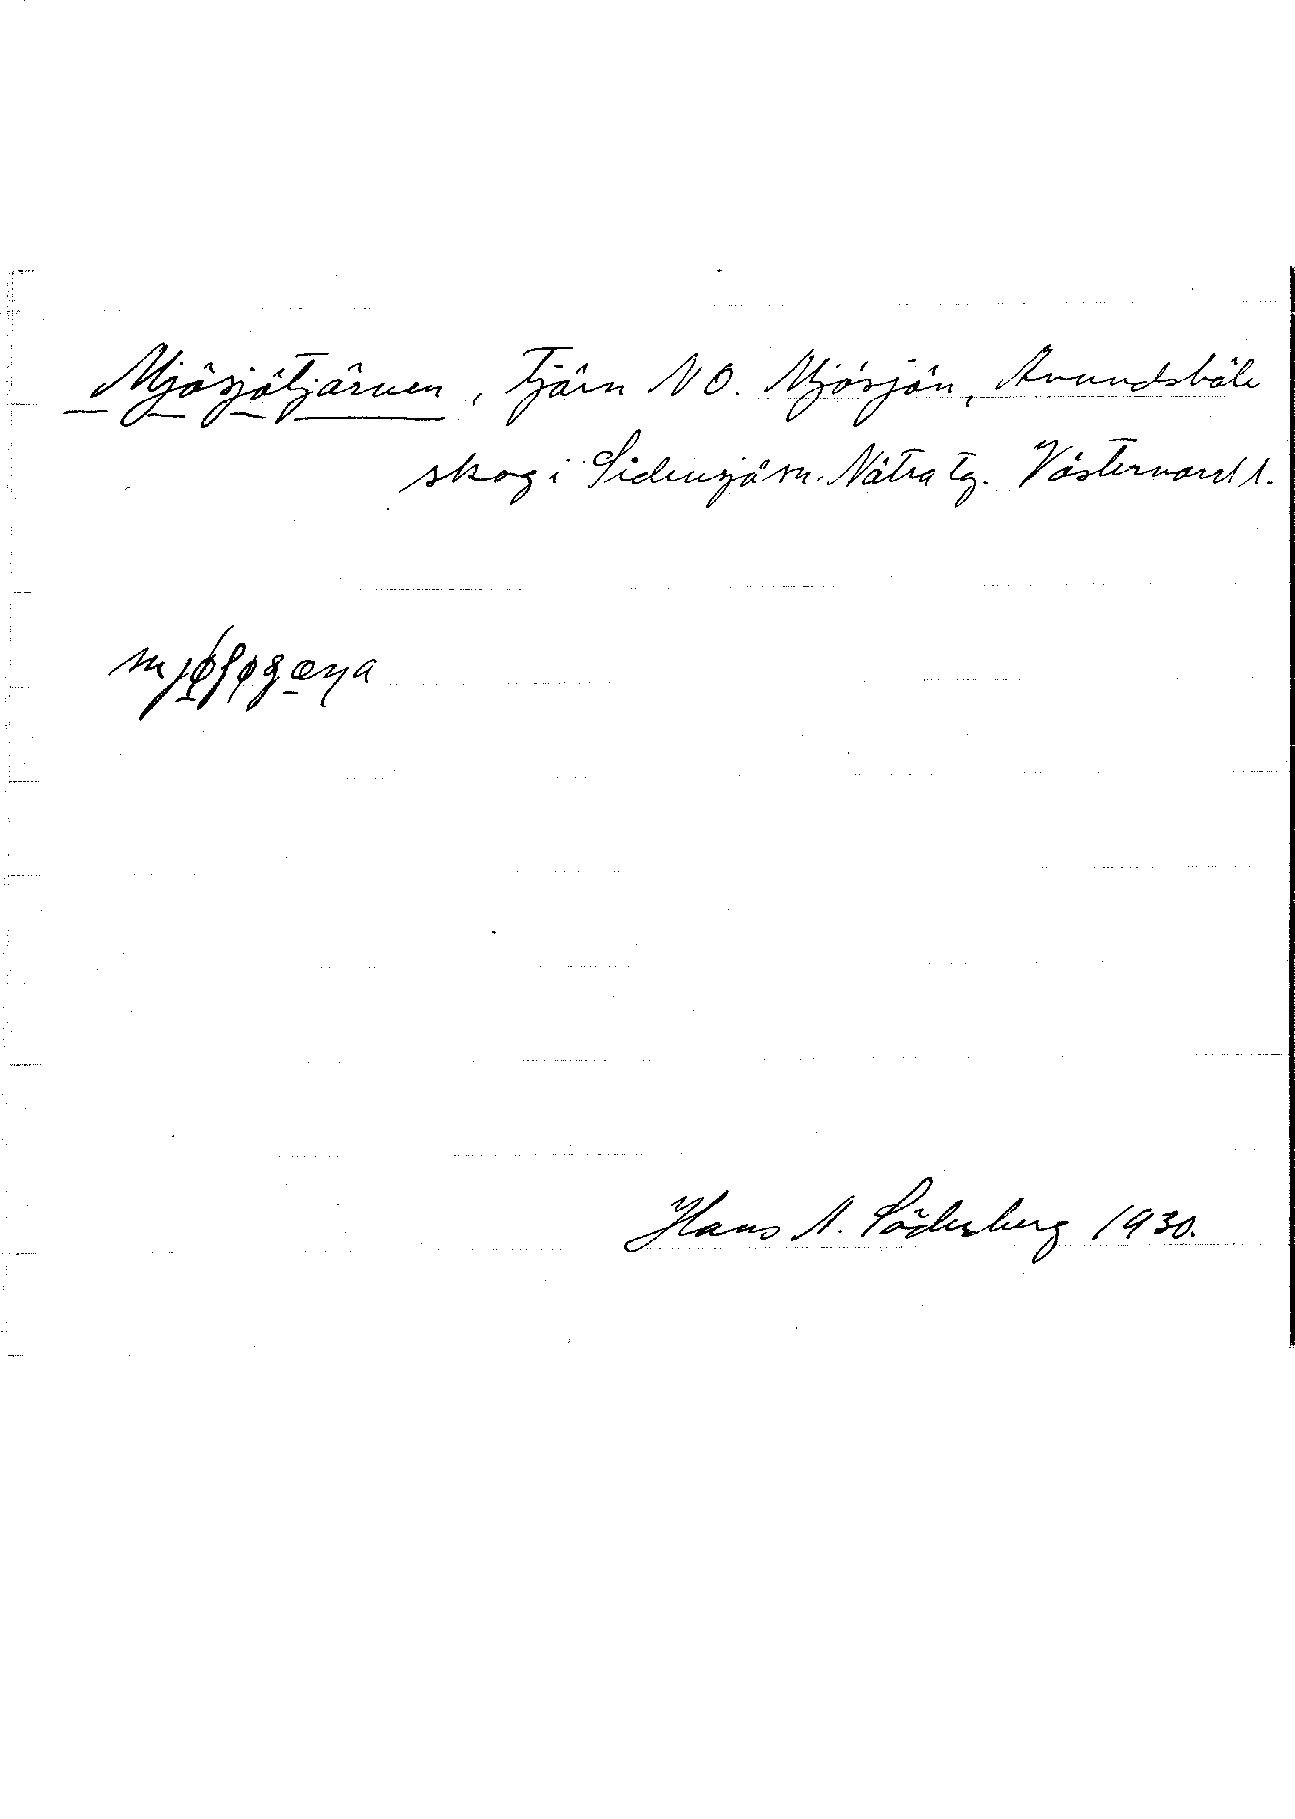 Mjösjötjärnen, Tjärn NO. Mjösjön, Avundsböle
skog i Sidensjö sn. Nätra tg. Västernorrl l.
Hans A. Söderberg 1930.